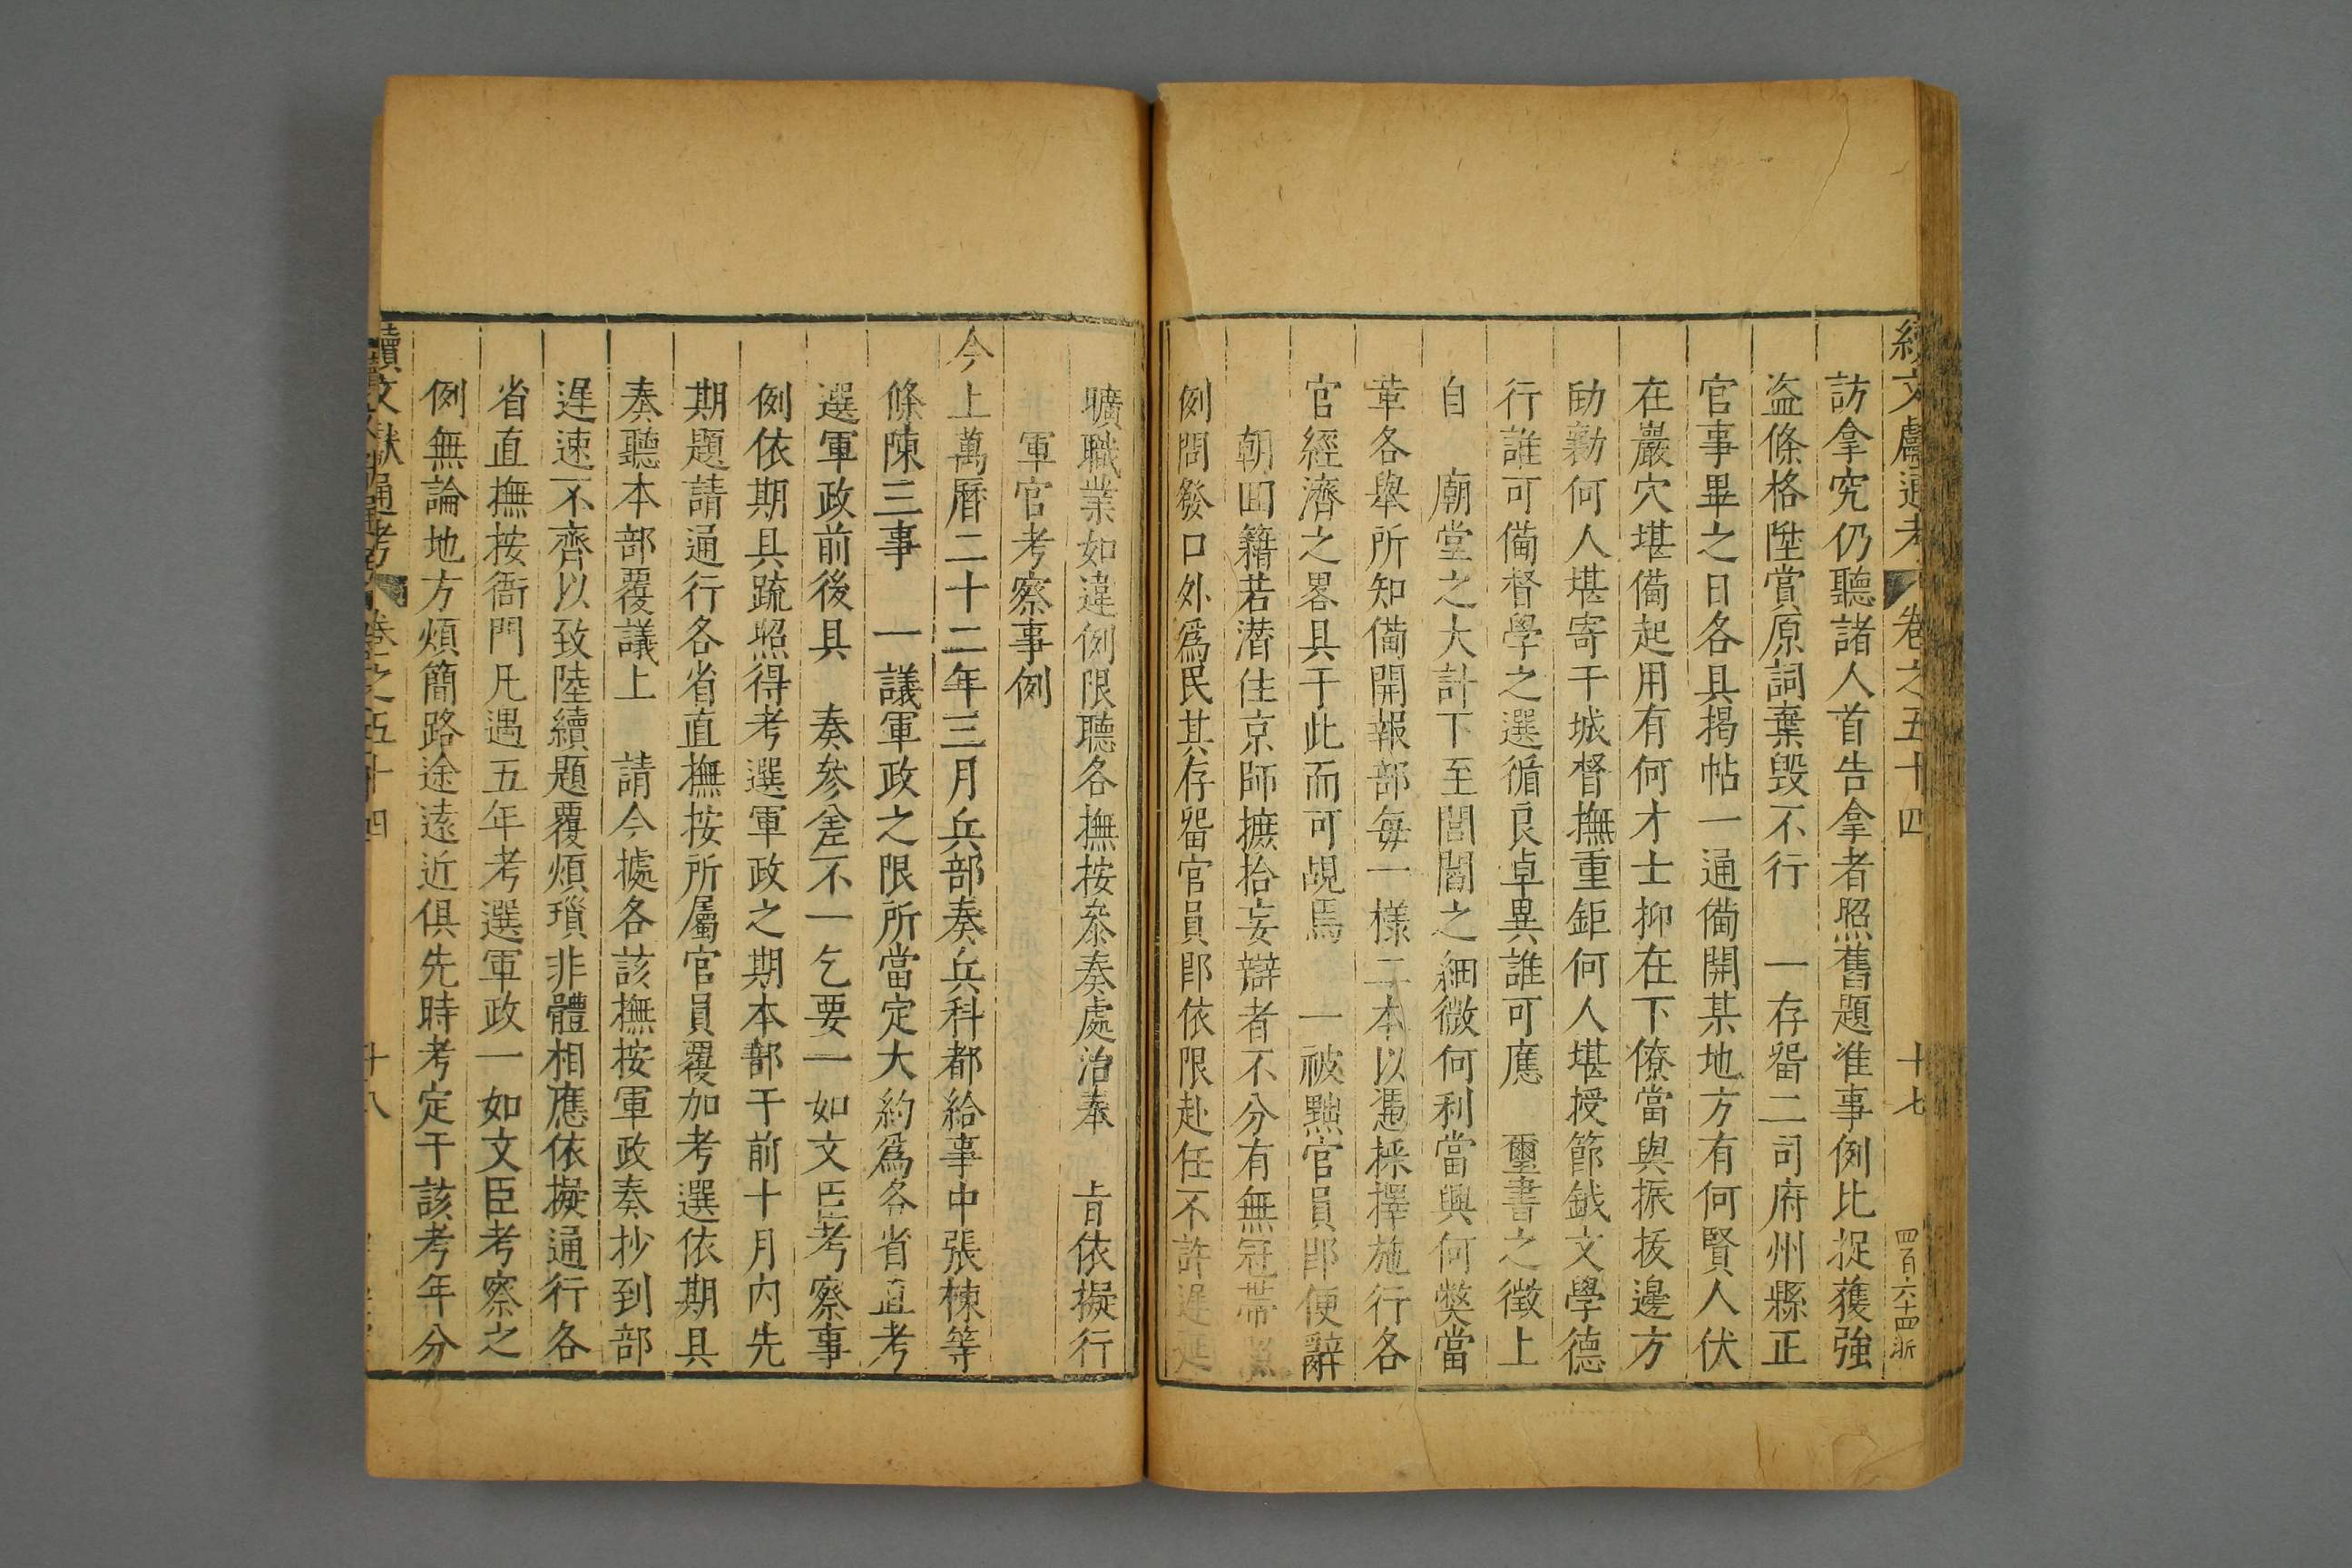 續文獻通考 卷之五十四 十七 四百六十四浙
訪拿究仍聽諸人首告拿者照舊題准事例比捉獲強
盜條格陞賞原詞棄毀不行 一存畱二司府州縣正
官事畢之日各具揭帖一通備開某地方有何賢人伏
在巖穴堪備起用有何才士抑在下僚當與振拔邊方
助勷何人堪寄干城督撫重鉅何人堪授節鉞文學德
行誰可備督學之選循良卓異誰可應 璽書之徵上
自 廟堂之大計下至閭閻之細微何利當興何獘當
革各舉所知備開報部每一樣二本以憑採擇施行各
官經濟之畧具于此而可覘焉 一被黜官員卽便辭
朝囬籍若潛住京師摭拾妄辯者不分有無冠帶
例問發口外爲民其存畱官員卽依限赴任不許遲延
曠職業如違例限聽各撫按叅奏處治奉 㫖依擬行
軍官考察事例
今上萬曆二十二年三月兵部奏兵科都給事中張棟等
條陳三事 一議軍政之限所當定大約爲各省直考
選軍政前後具 奏參差不一乞要一如文臣考察事
例依期具疏照得考選軍政之期本部于前十月內先
期題請通行各省直撫按所屬官員覆加考選依期具
奏聽本部覆議上 請今據各該撫按軍政奏抄到部
遲速不齊以致陸續題覆煩瑣非體相應依擬通行各
省直撫按衙門凡遇五年考選軍政一如文臣考察之
例無論地方煩簡路途遠近俱先時考定于該考年分
續文獻通考 卷之五十四 十八